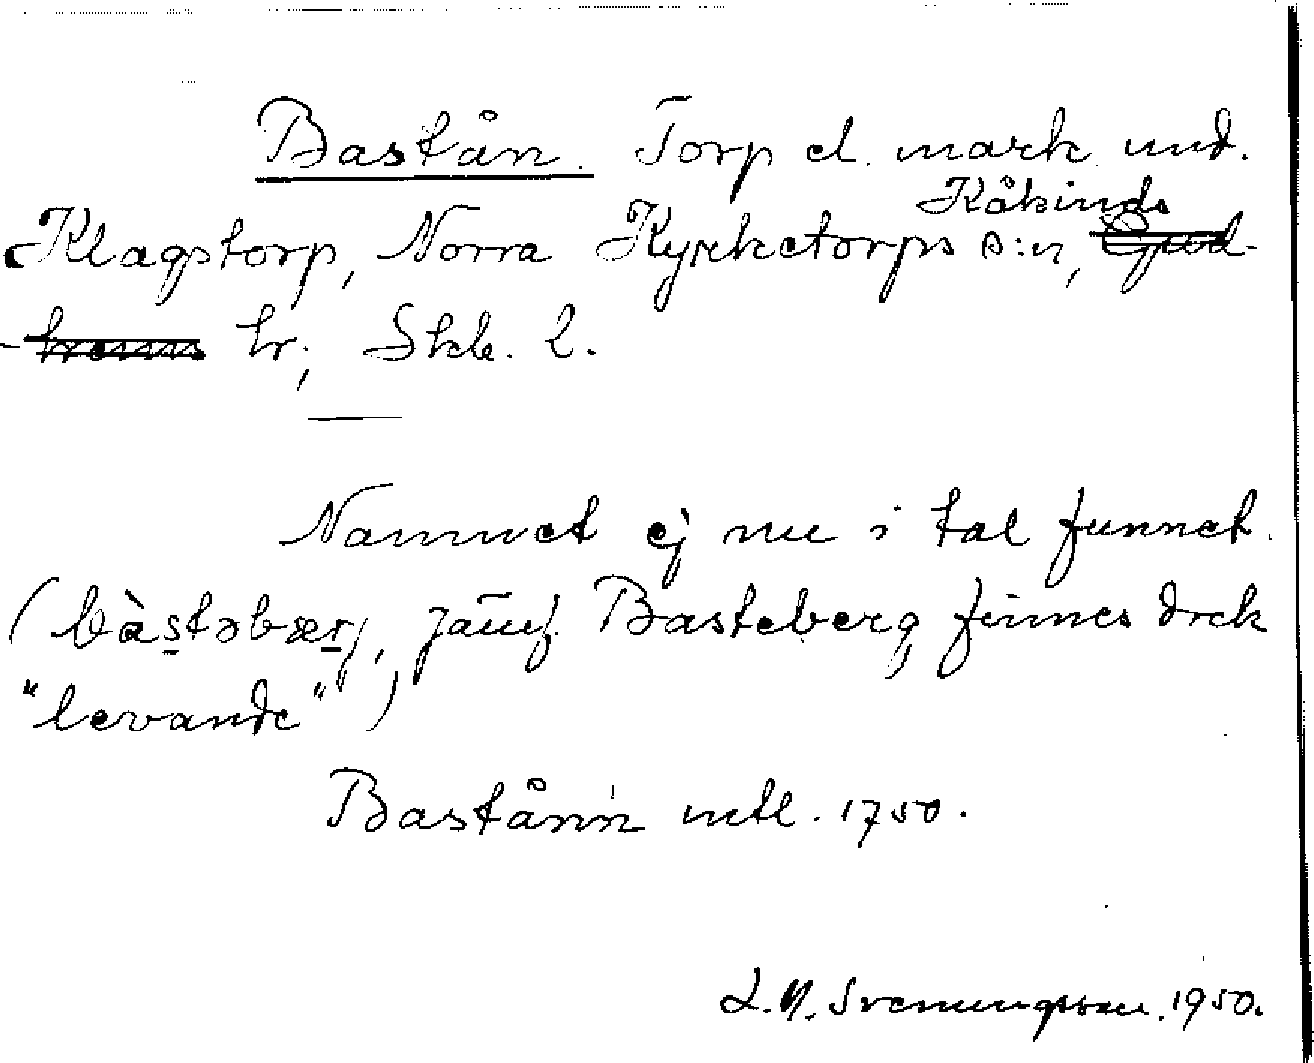 Bastån. Torp el. mark und.
Klagstorp, Norra Kyrketorps s:n, Kåkinds Gud-
-hems hr, Skb. l.
Namnet ej nu i tal funnet.
(bàstəbær, jämf. Basteberg finnes dock
"levande")
Bastånn mtl. 1750.
L. N. Svenungsson. 1950.